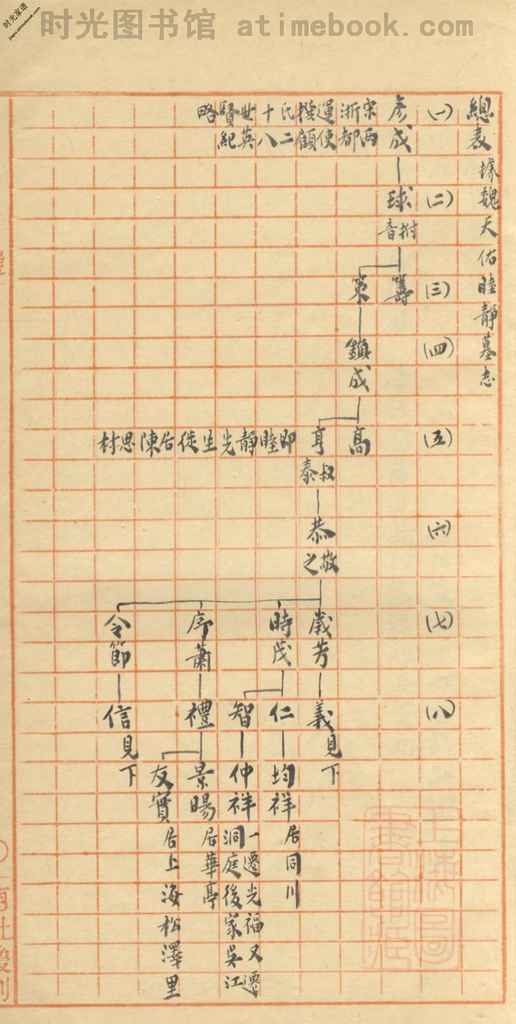 时光图书馆 atimebook.com
时光家谱
www.atimebook.com
總表 據魏天佑睦靜墓志
(一)
彥成
宋兩浙都運使
(二)
球
(三)
籌
策
(四)
鎮成
(五)
高
亨
叔泰
即睦靜先生徙居陳思村
(六)
恭
敬之
(七)
歲芳
時茂
序蕭
令節
(八)
義 見下
仁
智
禮
信 見下
均祥 居同川
仲祥 一遷光福又遷洞庭後家吳江
景暘 居華亭
友實 居上海松澤里